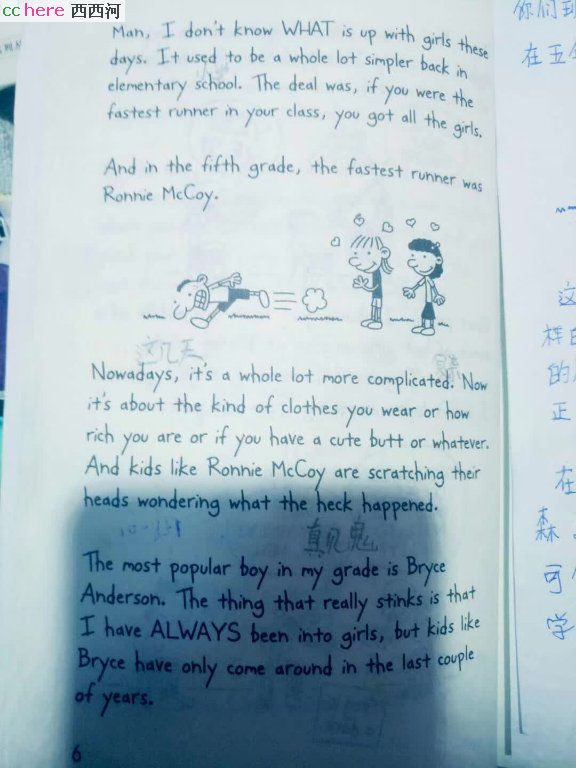 cchere 西西河
Man, I don't know WHAT is up with girls these
days. It used to be a whole lot simpler back in
elementary school. The deal was, if you were the
fastest runner in your class, you got all the girls.
And in the fifth grade, the fastest runner was
Ronnie McCoy.
这几天
Nowadays, it's a whole lot more complicated. Now
it's about the kind of clothes you wear or how
rich you are or if you have a cute butt or whatever.
And kids like Ronnie McCoy are scratching their
heads wondering what the heck happened.
真见鬼
The most popular boy in my grade is Bryce
Anderson. The thing that really stinks is that
I have ALWAYS been into girls, but kids like
Bryce have only come around in the last couple
of years.
6
你们到
在五
这
样
的
正
在
森
可
学